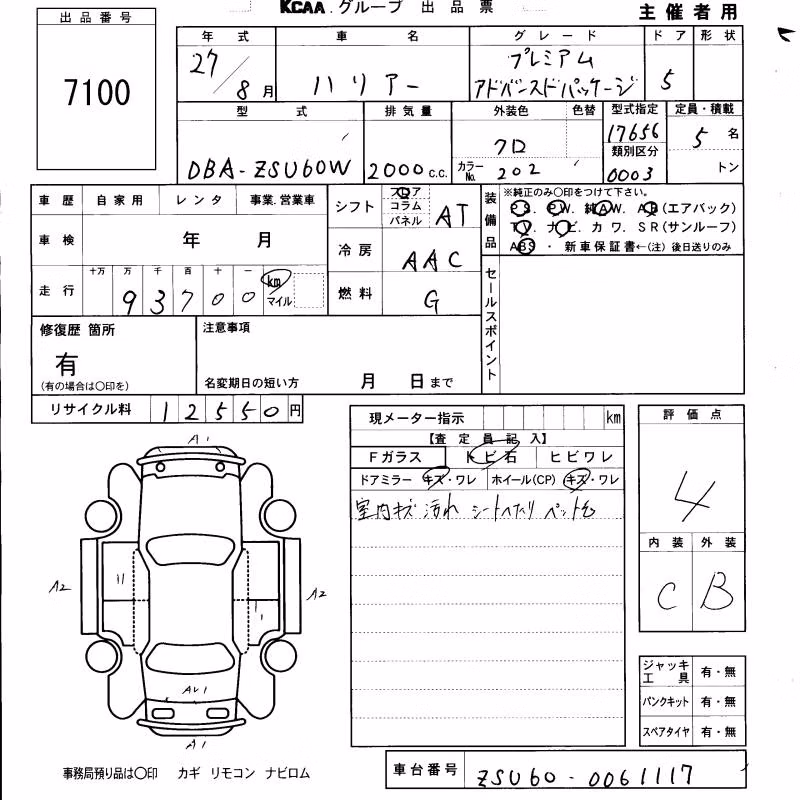 KCAA.グループ 出品票
主催者用
出品番号
7100
年式 車名 グレード ドア 形状
27/8月 ハリアー プレミアム アドバンスドパッケージ 5
型式 排気量 外装色 色替 型式指定 定員・積載
DBA-ZSU60W 2000c.c. クロ 17656 5名
カラーNo. 202 類別区分 0003 トン
車歴 自家用 レンタ 事業.営業車
車検 年 月
走行 十万 万 千 百 十 一 km マイル
93700
シフト フロア コラム パネル AT
冷房 AAC
燃料 G
装備品 ※純正のみ〇印をつけて下さい。
P.S. P.W. 純A.W. A.B(エアバック)
T.V. ナビ カワ. SR(サンルーフ)
ABS ・ 新車保証書←(注) 後日送りのみ
セールスポイント
修復歴 箇所
有
(有の場合は〇印を)
注意事項
名変期日の短い方 月 日まで
リサイクル料 12550円
現メーター指示 km
【査定員記入】
Fガラス トビ石 ヒビワレ
ドアミラー キズ・ワレ ホイール(CP) キズ・ワレ
室内キズ 汚れ シートヘタリ ペット毛
評価点
4
内装 外装
C B
A1
A2
A2
AU1
A1
ジャッキ工具 有・無
パンクキット 有・無
スペアタイヤ 有・無
事務局預り品は〇印 カギ リモコン ナビロム
車台番号 ZSU60-0061117